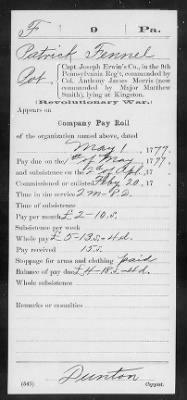 F 9 Pa.
Patrick Fennel
Pvt., Capt. Joseph Erwin's Co., in the 9th
Pennsylvania Reg't, commanded by
Col. Anthony James Morris (now
commanded by Major Matthew
Smith), lying at Kingston.
(Revolutionary War.)
Appears on
Company Pay Roll
of the organization named above, dated
May 1, 1777.
Pay due on the 1st of May, 1777.
and subsistence on the 2d of Apl, 17
Commissioned or enlisted Feby 20, 17
Time in the service 2 m- P. D.
Time of subsistence
Pay per month £ 2-10 s.
Subsistence per week
Whole pay £ 5-13 s-4 d.
Pay received 15 s
Stoppage for arms and clothing paid
Balance of pay due £4-18 s.-4 d.
Whole subsistence
Remarks or casualties
Dunton
(565) Copyist.